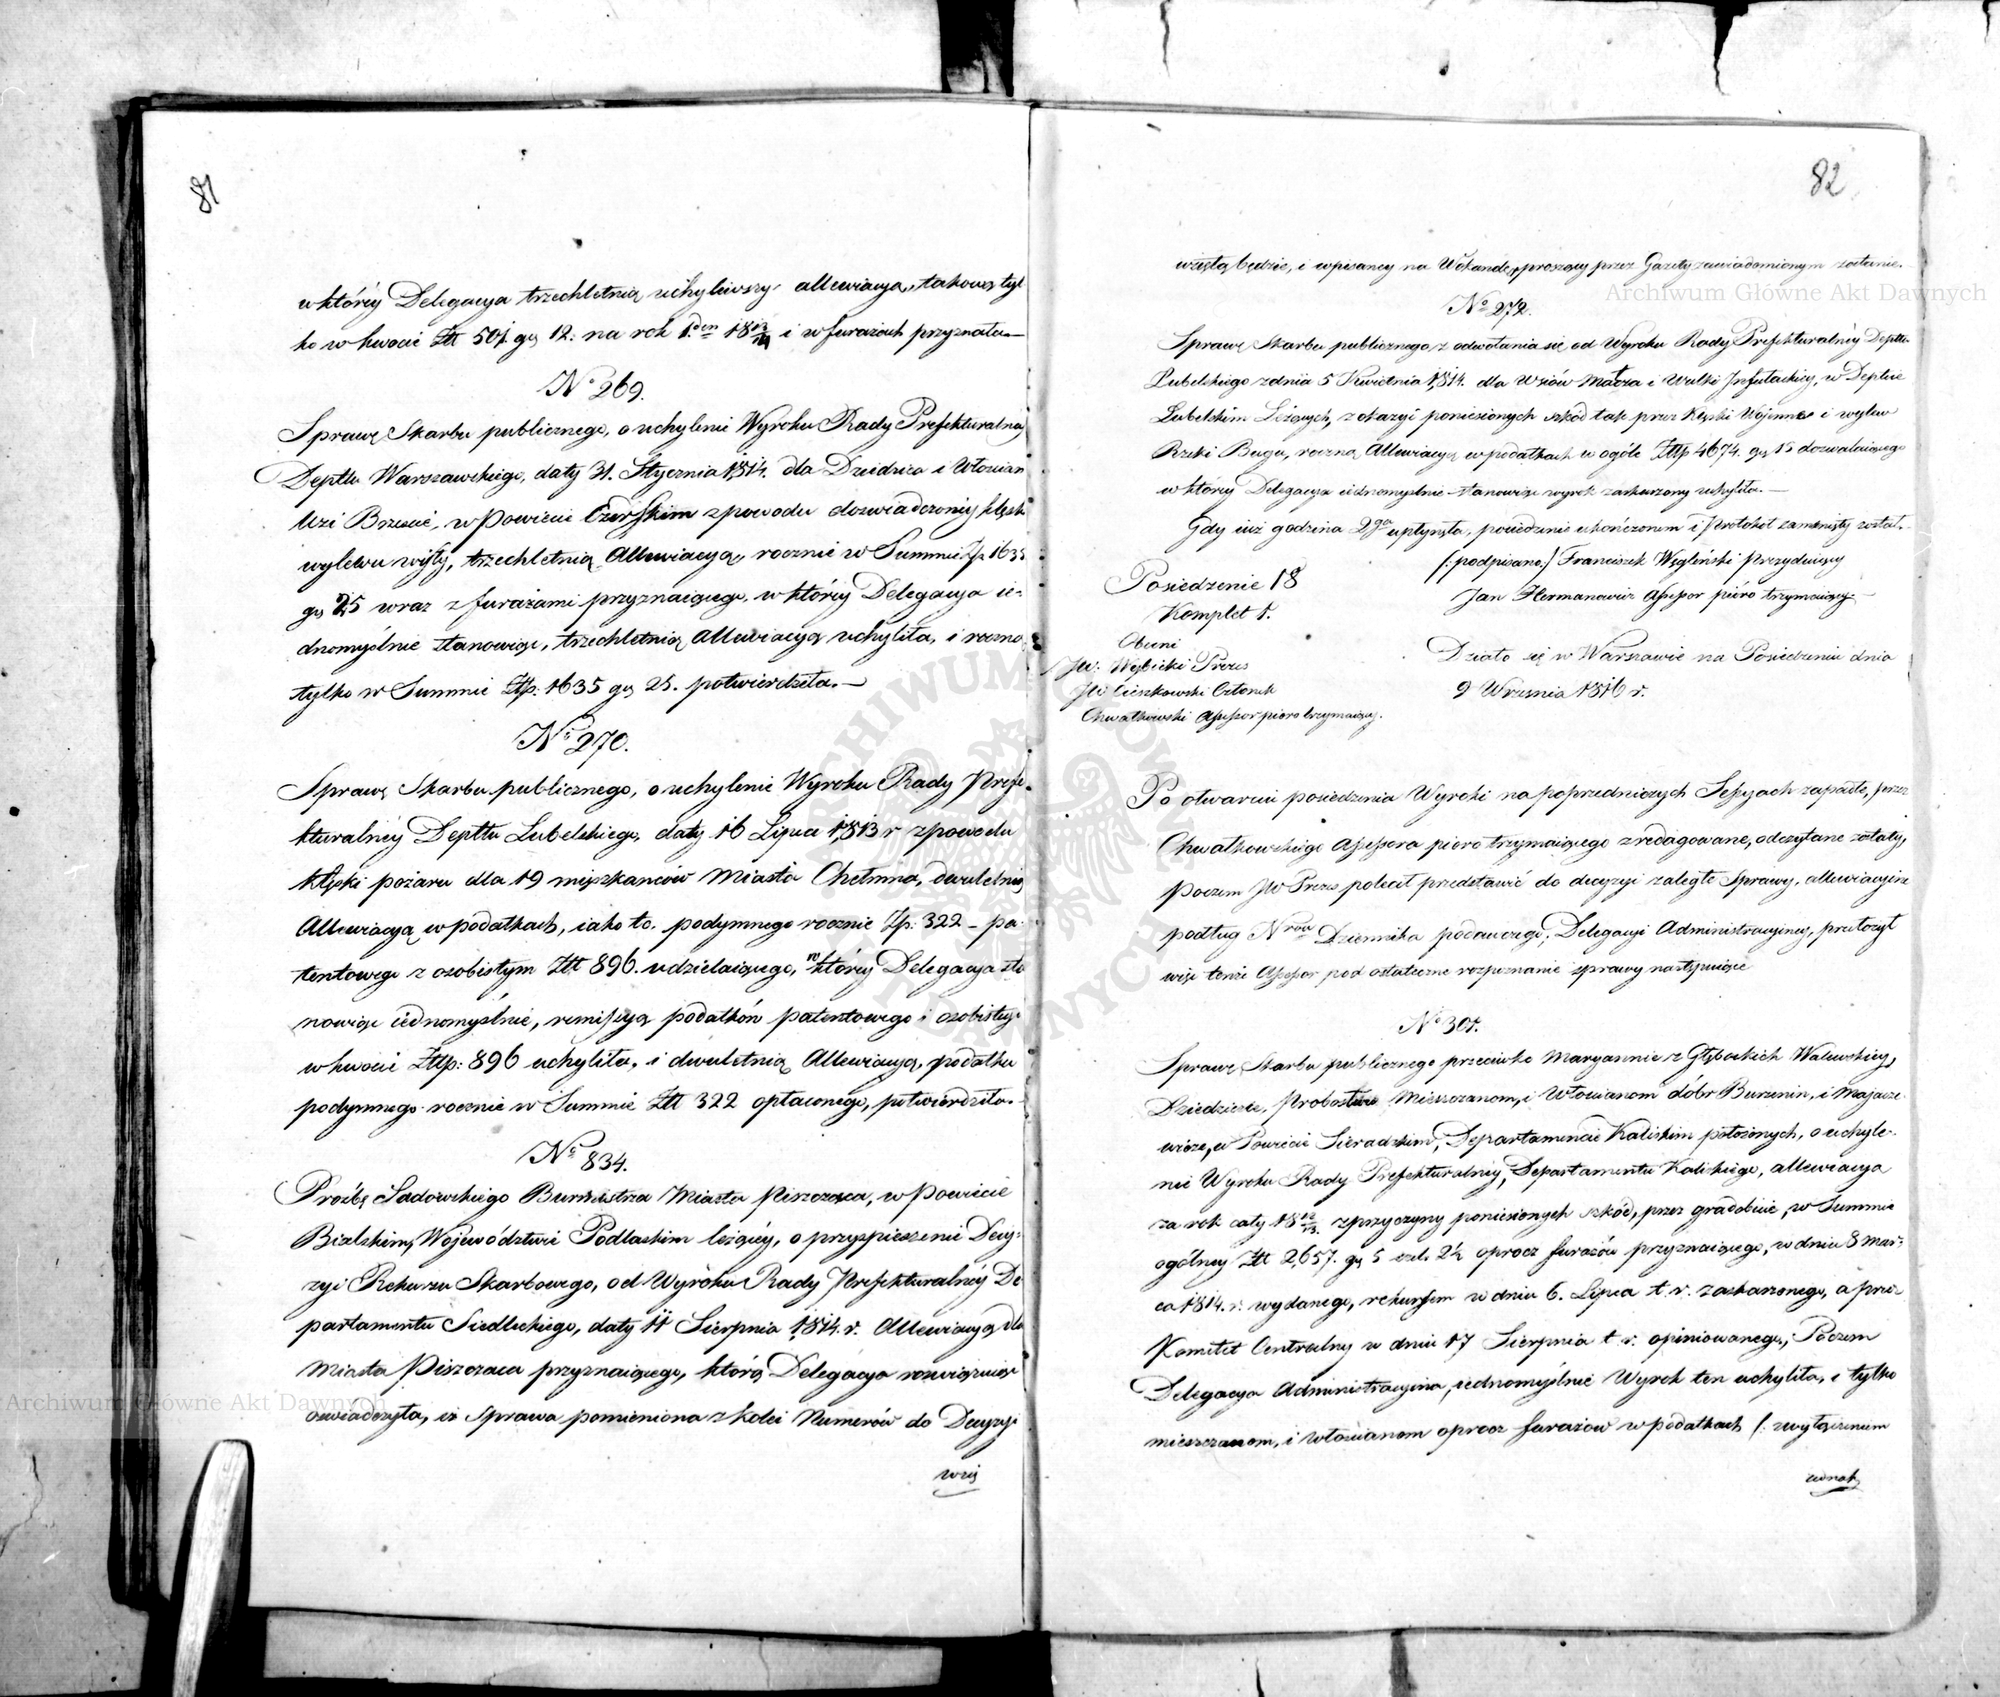 81
w którey Delegacya trzechletnią uchyliwszy allewiacyą, takową tyl
ko w kwocie Złt 501 gr 12. na rok 1.den 18 13/14 i w furażach przyznała.—
No 269.
Sprawę Skarbu publicznego, o uchylenie Wyroku Rady Prefekturalney
Depttu Warszawskiego, daty 31. Stycznia 1,814. dla Dziedzica i Włościan
Wsi Brzeście, w Powiecie Czerskim z powodu doświadczoney klęsk
wylewu wisły, trzechletnią Allewiacyą, rocznie w Summie Zp 1635
gr 25 wraz z furażami przyznaiącego, w którey Delegacya ie-
dnomyślnie stanowiąc, trzechletnią Allewiacyą uchyliła, i roczną
tylko w Summie Złp: 1635 gr 25. potwierdziła.—
No 270.
Sprawę Skarbu publicznego, o uchylenie Wyroku Rady Prefe-
kturalney Depttu Lubelskiego, daty 16 Lipca 1,813 r z powodu
klęski pożaru dla 19 mięszkanców Miasta Chełmna, dwuletnią
Allewiacyą w podatkach, iako to. podymnego rocznie Zp: 322 – pa-
tentowego z osobistym Złt 896. udzielaiącego, w którey Delegacya sta
nowiąc iednomyślnie, remissyą podatków patentowego i osobistego
w kwocie Złłp: 896 uchyliła, i dwuletnią Allewiacyą, podatku
podymnego rocznie w Summie Złt 322 opłaconego, potwierdziła.
No 834.
Proźbę Sadowskiego Burmistrza Miasta Piszczaca, w Powiecie
Bialskim, Województwie Podlaskim leżącey, o przyspieszenie Decy-
zyi Rekursu Skarbowego, od Wyroku Rady Prefekturalney De
partamentu Siedleckiego, daty 11 Sierpnia 1,814. r. Allewiacyą dla
Miasta Piszczaca przyznaiącego, którą Delegacya rozwiązuiąc
oświadczyła, iż Sprawa pomieniona z kolei Numerów do Decyzyi
wzię
82
wziętą będzie, i wpisaney na Wokandę, proszący przez Gazety zawiadomionym zostanie.
No 272.
Sprawę Skarbu publicznego z odwołania się od Wyroku Rady Prefekturalney Depttu
Lubelskiego z dnia 5 Kwietnia 1,814. dla Wsiów Matcza i Wulki Infułackiey, w Deptcie
Lubelskim Leżących, z okazyi poniesionych szkód tak przez klęski Wojenne i wylew
Rzeki Bugu, roczną Allewiacyą w podatkach w ogóle Złłp 4674. gr 15 dozwalaiącego
w którey Delegacya iednomyślnie stanowiąc wyrok zaskarzony uchyliła.—
Gdy iuż godzina 2ga upłynęła, posiedzenie ukończonem i Protokół zamknięty został.
(: podpisano:) Franciszek Węgliński Prezyduiący
Jan Hermanowicz Assessor pióro trzymaiący.
Posiedzenie 18
Komplet 1.
Obecni
JW: Wybicki Prezes
JW Cieszkowski Członek
Chwatkowski Assessor pioro trzymaiący.
Działo się w Warszawie na Posiedzeniu dnia
9 Września 1816 r.
Po otwarciu posiedzenia Wyroki na poprzedniczych Sessyach zapadłe, przez
Chwatkowskiego Assessora pioro trzymaiącego zredagowane, odczytane zostały,
poczem JW Prezes polecił przedstawić do decyzyi zaległe Sprawy, allewiacyine
podług Nrou Dziennika podawczego, Delegacyi Administracyiney, przełożył
więc tenże Assessor pod ostateczne rozpoznanie sprawy następuiące
No 301.
Sprawę Skarbu publicznego przeciwko Maryannie z Głębockich Walewskiey,
Dziedziczce, Probostwu Mieszczanom, i Włościanom dóbr Burzenin, i Majacze-
wicze, w Powiecie Sieradzkim, Departamencie Kaliskim położonych, o uchyle-
nie Wyroku Rady Prefekturalney, Departamentu Kaliskiego, allewiacya
za rok cały 18 12/13. z przyczyny poniesionych szkód, przez gradobicie, w Summie
ogólney Złt 2,657. gr 5 szel. 2½ oprocz furażów przyznaiącego, w dniu 8 mar-
ca 1814. r. wydanego, rekursem w dniu 6. Lipca t. r. zaskarzonego, a przez
Komitet Centralny w dniu 17 Sierpnia t. r. opiniowanego, Poczem
Delegacya Administracyina, iednomyślnie Wyrok ten uchyliła, i tylko
mieszczanom, i włościanom oprocz furazow w podatkach (: z wyłączeniem
iednak
Archiwum Główne Akt Dawnych
Archiwum Główne Akt Dawnych